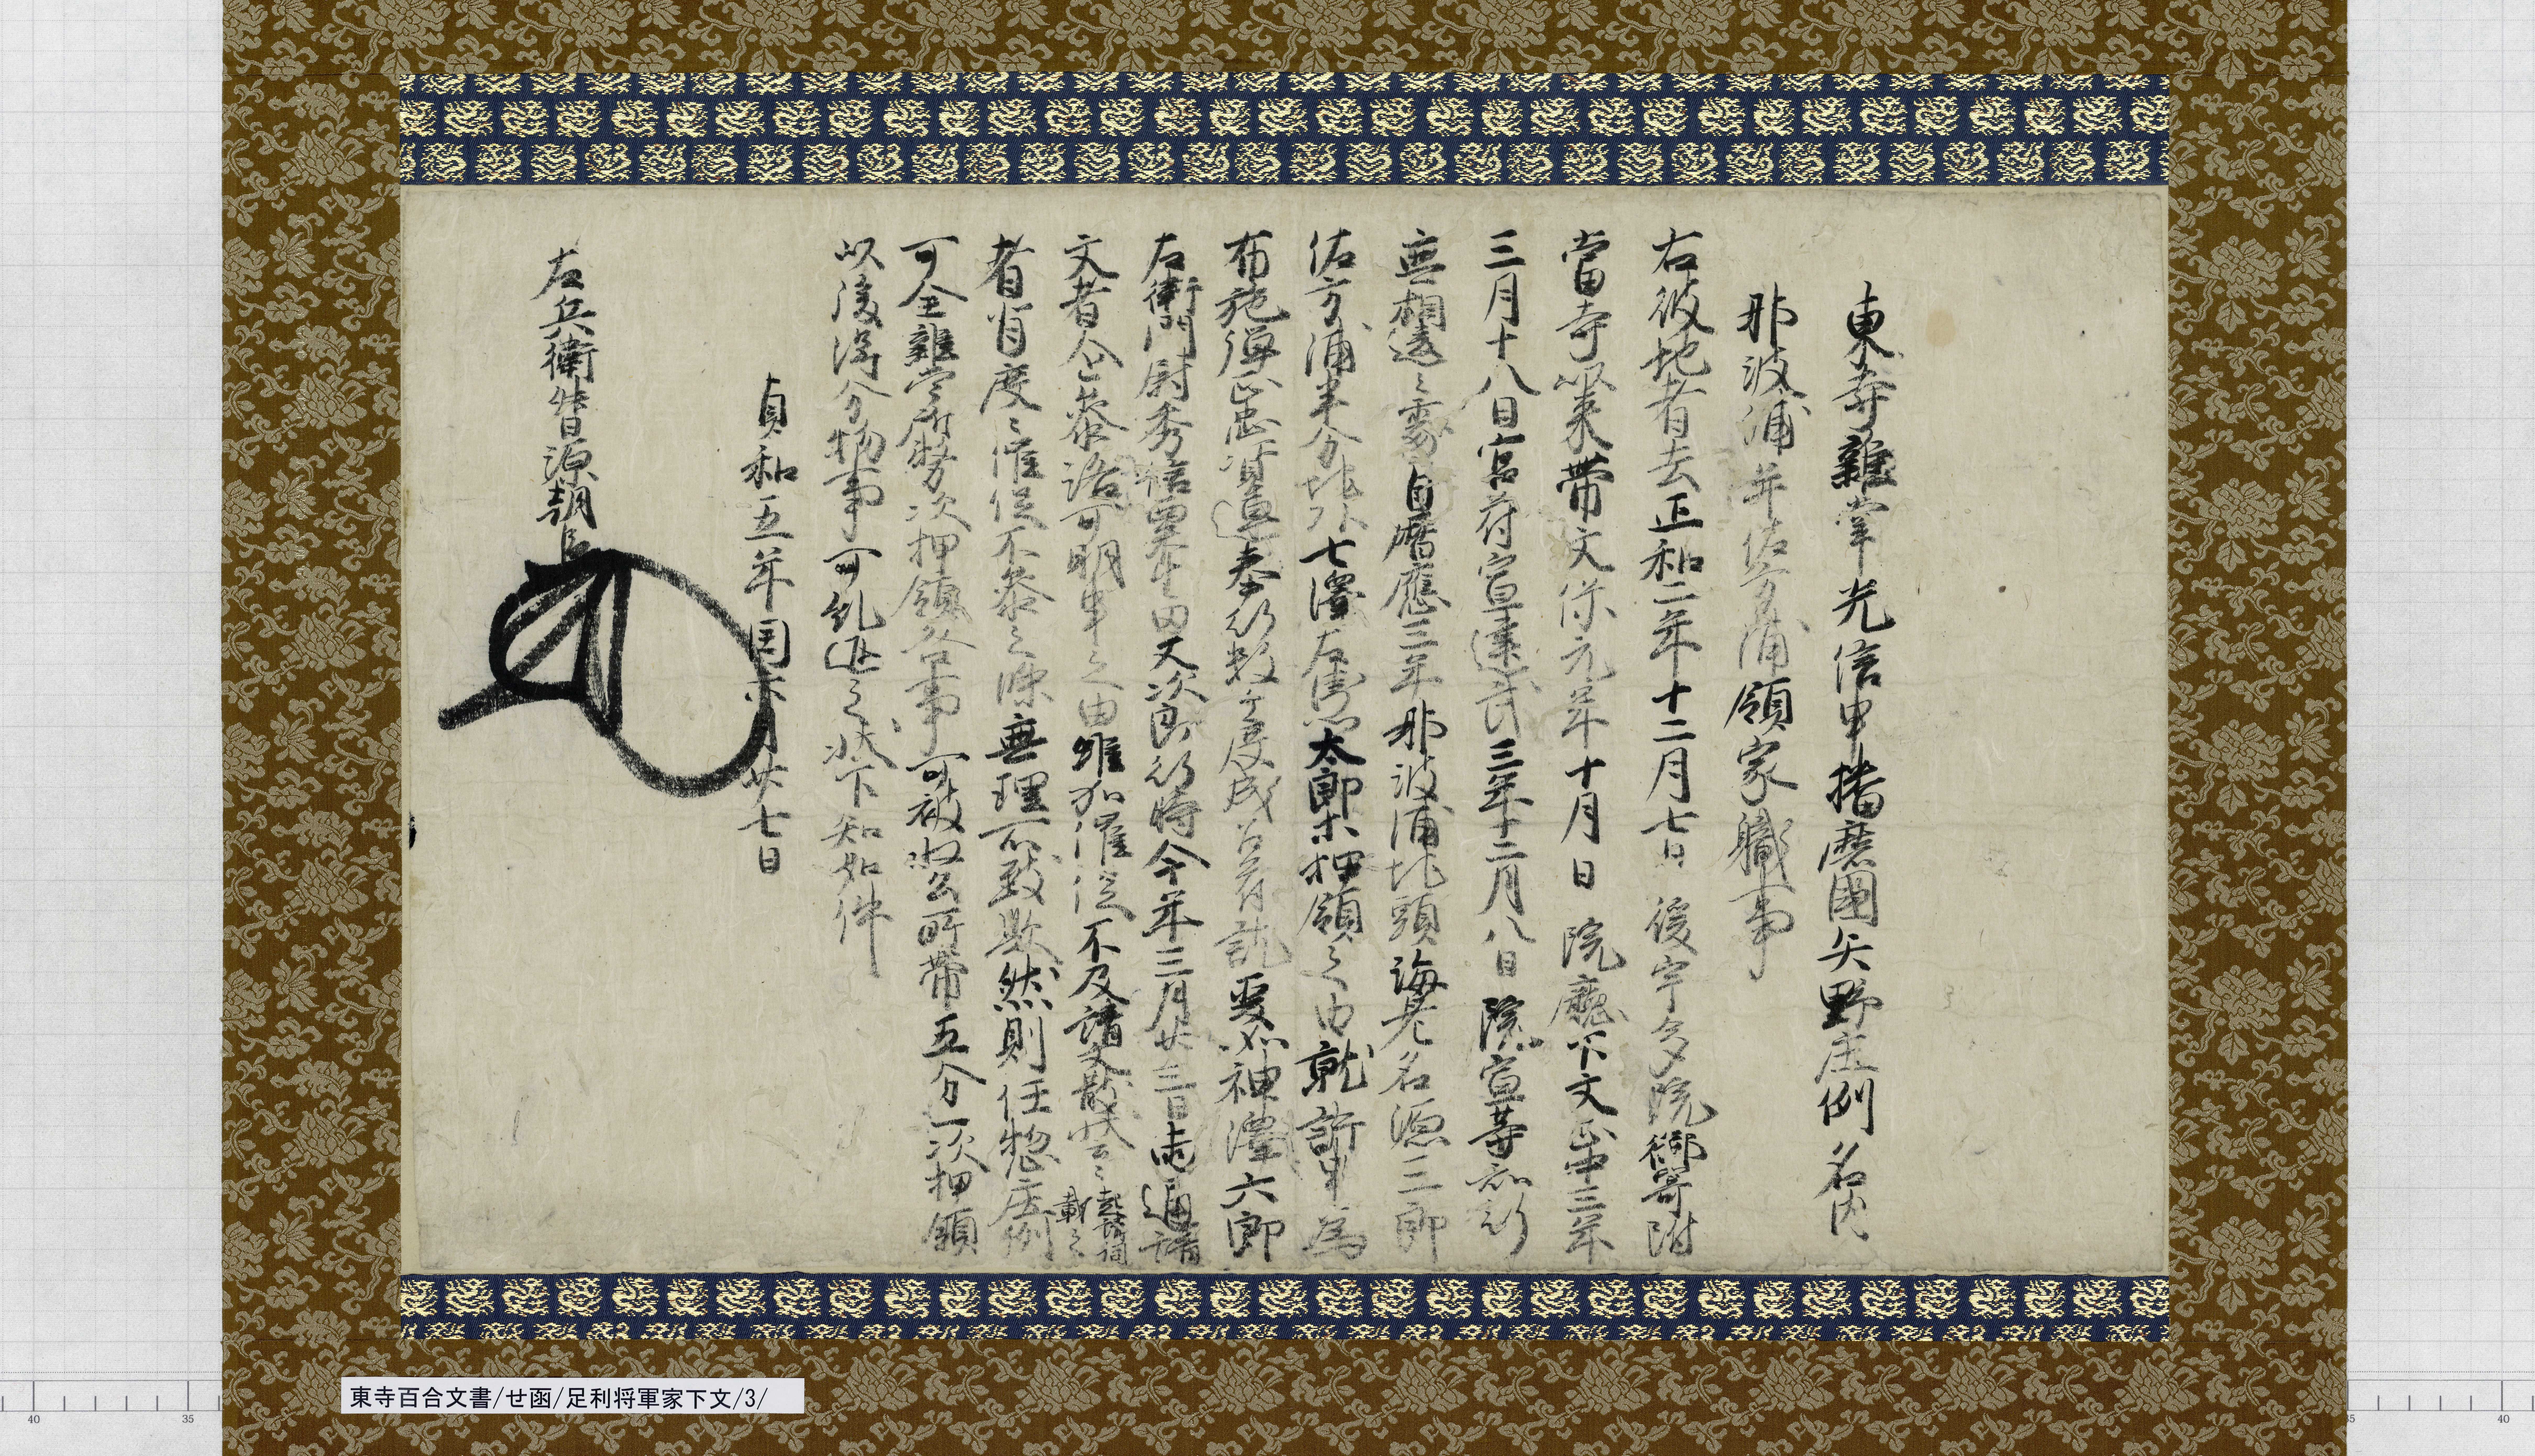 東寺雜掌光信申播磨國矢野庄例名内
那波浦并佐方浦領家職事
右彼地者去正和二年十二月七日後宇多院御寄附
當寺以来帶文保元年十月日院廳下文正中三年
三月十八日官苻宣建武三年十二月八日院宣等知行
無相違之處自暦應三年那波浦地頭海老名源三郎
佐方浦半分地頭七澤左衛門太郎等押領之由就訴申為
布施弾正忠資連奉行数ヶ度成召符訖爰如神澤六郎
左衛門尉秀信粟生田又次郎行時今年三月廿三日両通請
文者企参洛可明申之由雖加催促不及請文散状云々起請詞載之
者背度々催促不参之条無理所致歟然則任惣庄例
可全雜掌所務次押領咎事可被収公所帶五分一次押領
以後得分物事可糺返之状下知如件
貞和五年閏六月廿七日
左兵衛督源朝臣
東寺百合文書/せ函/足利将軍家下文/3/
40
35
35
40